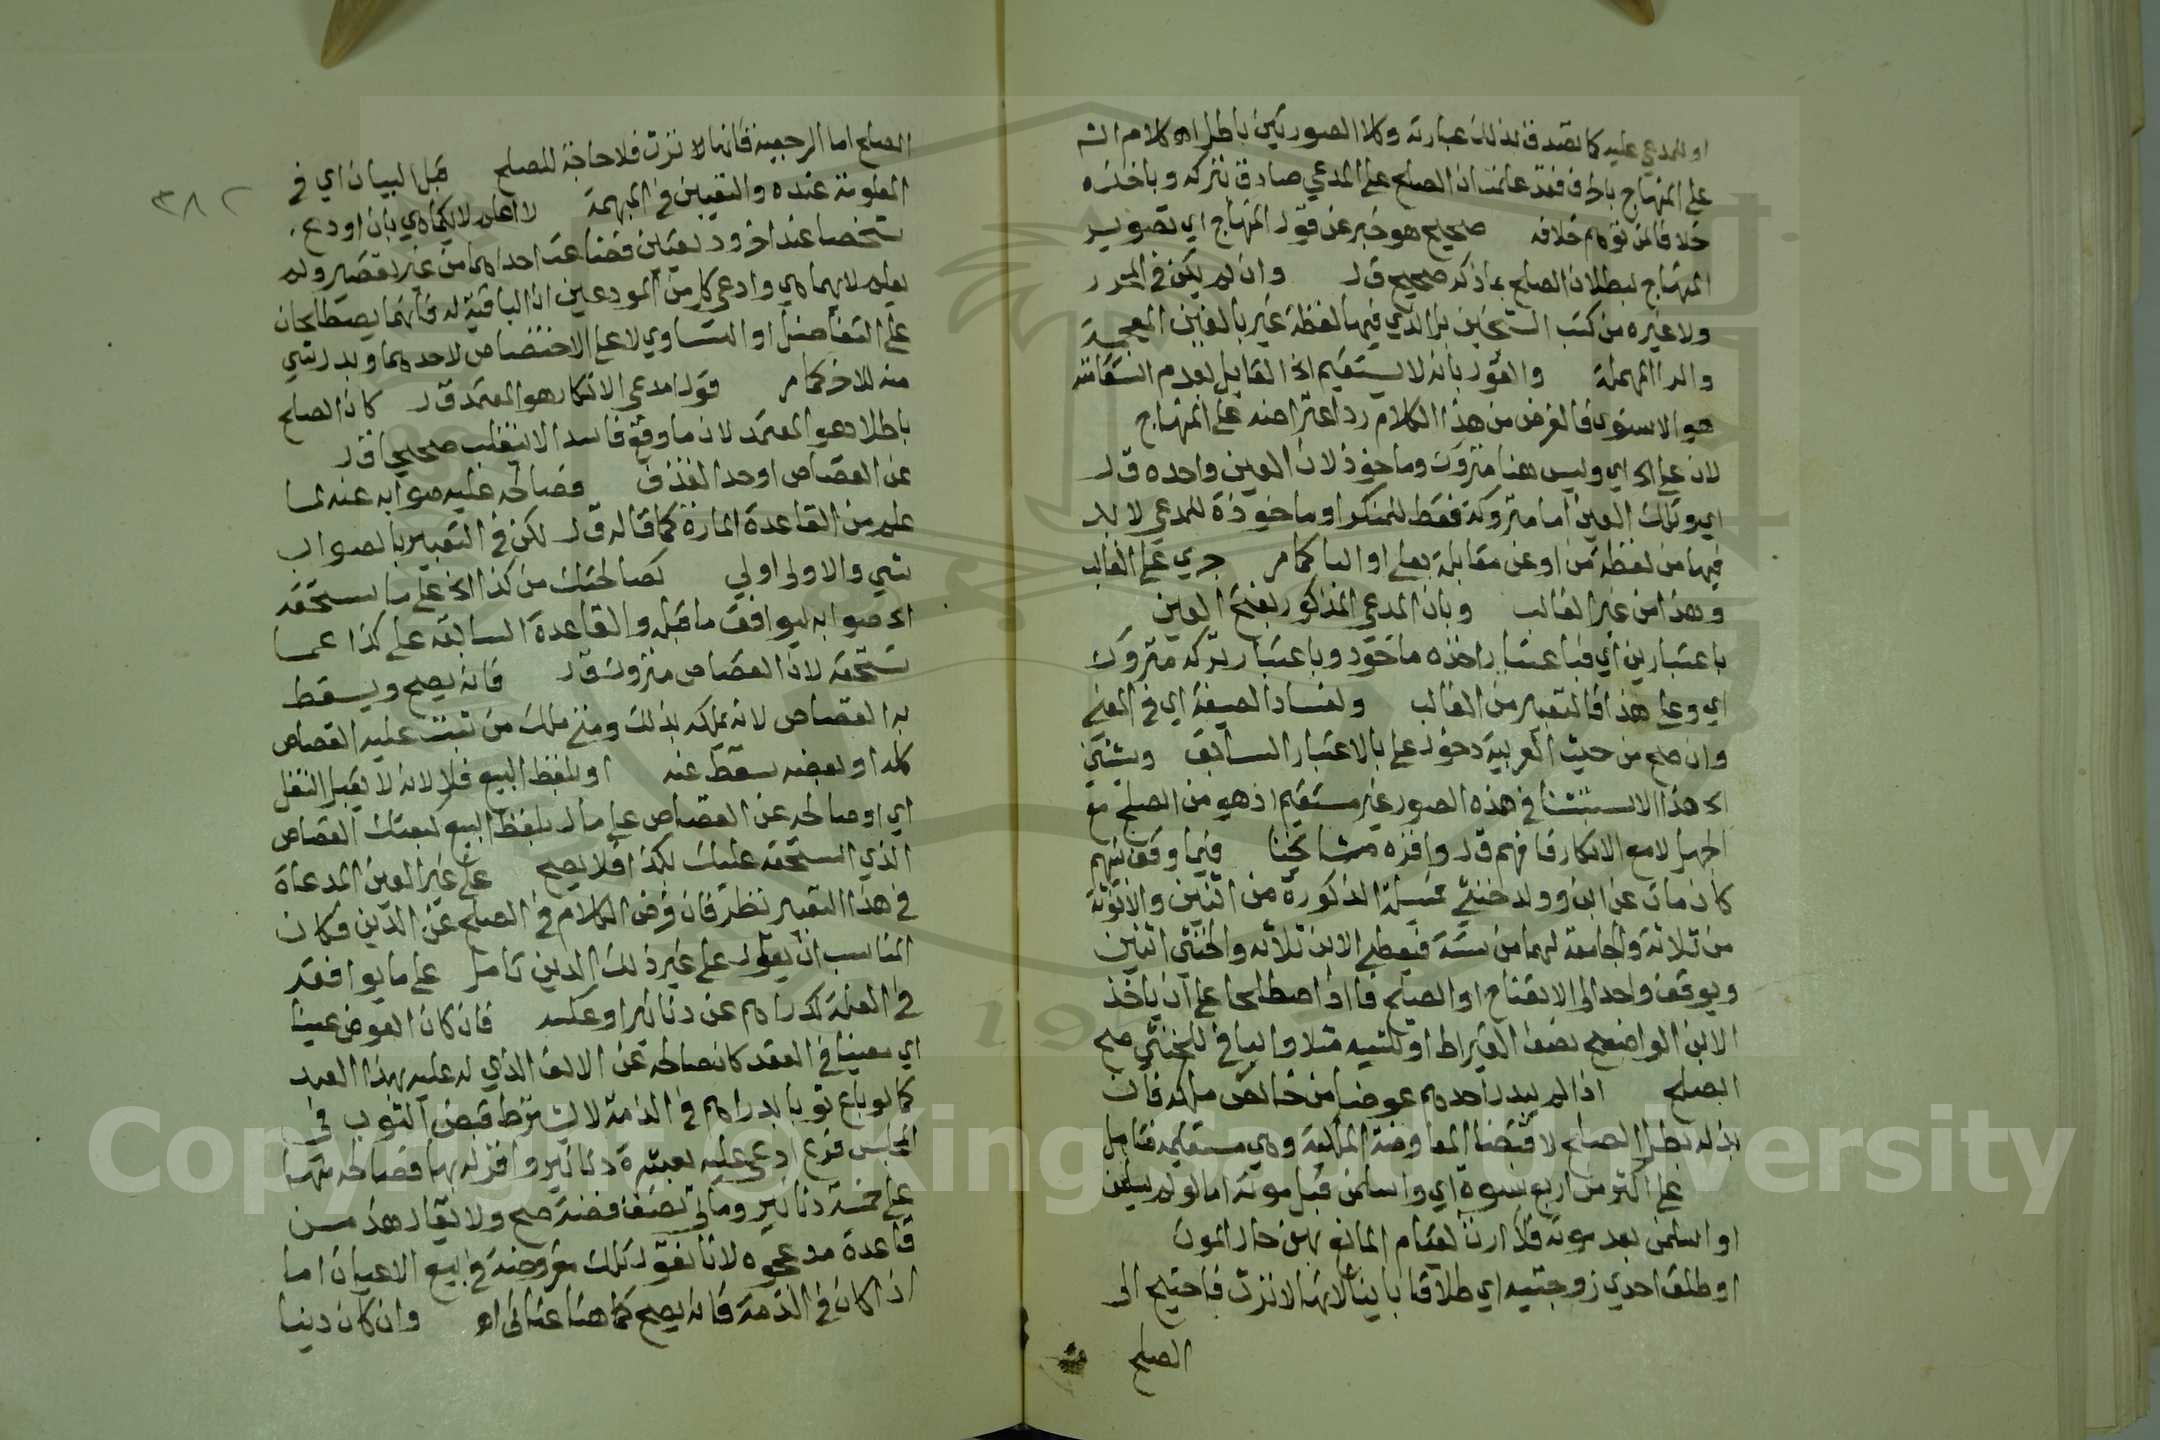 او للمدعي عليه كما تصدق بذلك عبارته وكلا الصورتين باطل اه كلام الش
على المنهاج باطرف فقد علمت ان الصلح على المدعي صادق بتركه وباخذه
خلافا لمن توهم خلافه صحيح هو خبر عن قول المنهاج اي تصوير
المنهاج لبطلان الصلح بما ذكر صحيح قال وان لم يكن في المحرر
ولا غيره من كتب الشيخين بل الذي فيها لفظة غير بالغين المعجمة
والرا المهملة والقول بانه لا يستقيم اذ القايل بعدم استقامته
هو الاسنوي فالغرض من هذا الكلام رد اعتراضه على المنهاج
لان على الخ اي وليس هنا متروك وماخوذ لان العين واحده قال
اي وتلك العين اما متروكة فقط للمنكر او ماخوذة للمدعي لا بد
فيها من لفظة من او عن مقابلة بعلى او البا كما مر جري على الغالب
وهذا من غير الغالب وبان المدعي المذكور بفتح العين
باعتبارين اي فباعتبار اخذه ماخوذ وباعتبار تركه متروك
اي وعلى هذا فالتعبير من الغالب ولفساد الصيغة اي في الفتح
وان صح من حيث العربية دخول على بالاعتبار السابق ويستثني
الخ هذا الاستثنا في هذه الصور غير مستقيم اذ هو من الصلح مع
الجهل لا مع الانكار فافهم قال واقره مشايخنا فيما وقف بينهم
كان مات عن ابن وولد خنثي فمسيلة الذكورة من اثنين والانوثة
من ثلاثة والجامعة لهما من ستة فيعطي الابن ثلاثه والخنثى اثنين
ويوقف واحد الى الاتضاح او الصلح فاذا اصطلحا على ان ياخذ
الابن الواضح نصف القيراط او ثلثيه مثلا والباقي للخنثي صح
الصلح اذا لم يبذل احدهم عوضا من خالص ملكه فان
بذله بطل الصلح لاقتضا المعاوضة الملكية وهي مستقيمه فتامل
على اكثر من اربع نسوة اي واسلمن قبل موته اما لو لم يسلمن
او اسلمن بعد موته فلا ارث لقيام المانع بهن حال الموت
او طلق احدي زوجتيه اي طلاقا باينا لانها لا ترث فاحتيج الى
الصلح
٣٨٢
الصلح اما الرجعية فانها لا ترث فلا حاجة للصلح قبل البيان اي في
المعينة عنده والتعيين في المبهمة لا اعلم لايكما هي بان اودع
شخصا عند اخر وديعتين فضاعت احداهما من غير تقصير ولم
يعلم لايهما هي وادعى كل من المودعين ان الباقية له فانهما يصطلحان
على التفاضل او التساوي لا على الاختصاص لاحدهما وبدل شي
منه للاخر كما مر قول مدعي الانكار هو المعتمد قال كان الصلح
باطلا هو المعتمد لان ما وقع فاسدا لا ينقلب صحيحا قال
عن القصاص او حد القذف فصالحه عليه صوابه عنه لما
علم من القاعدة المارة كما قاله قال لكن في التعبير بالصواب
شي والاولى اولي كصالحتك من كذا الخ على ما يستحقه
الخ صوابه ليوافق ما قبله والقاعدة السابقة على كذا عما
تستحقه لان القصاص متروك قال فانه يصح ويسقط
به القصاص لانه يملكه بذلك ومتى ملك من ثبت عليه القصاص
كله او بعضه سقط عنه او بلفظ البيع فلا لانه لا يقبل النقل
اي او صالحه عن القصاص على مال بلفظ البيع كبعتك القصاص
الذي استحقه عليك بكذا فلا يصح على غير العين المدعاة
في هذا التعبير نظر فان فرض الكلام في الصلح عن الدين فكان
المناسب ان يقول على غير ذلك الدين تامل على ما يوافقه
في العلة كدراهم عن دنانير او عكسه فان كان العوض عينا
اي معينا في العقد كان صالحه عن الالف الذي له عليه بهذا العبد
كما لو باع ثوبا بدراهم في الذمة لا يشترط قبض الثوب في
المجلس فرع ادعى عليه بعشرة دنانير واقر له بها فصالحه منها
على خمسة دنانير ومايتي نصف فضة صح ولا يقال هذه من
قاعدة مد عجوه لانا نقول تلك مفروضة في بيع الاعيان اما
اذا كان في الذمة فانه يصح كما هنا عناني اه وان كان دينا
Copyright © King Saud University